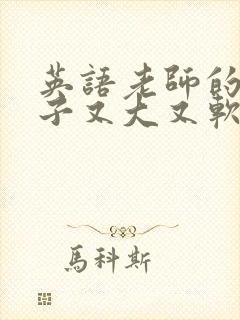 英語老師的
子又大又軟
馬科斯